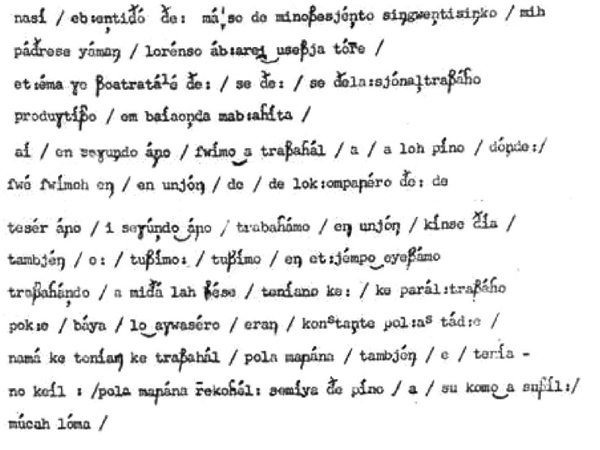 nasí / eb:entiđó đe: má¦so de minoβesjénto siŋgwentisiŋko / mih
páđrese yámaŋ / lorénso áb:arej‿useβja tóře /
et:éma yo βoatratálé đe: / se đe: / se đela:sjónaḷtraβáɦo
produɣtíβo / em baíaonda mab:aɦíta /
aí / en seɣundo áɲo / fwímo‿a traβaɦál / a / a loh píno / dónde:/
fwé fwímoh eŋ / en unjóŋ / de / de lok:ompaɲéro đe: de
tesér áɲo / i seɣúndo‿áɲo / trabaɦámo / eŋ unjóŋ / kínse đía /
tambjéŋ / o: / tuβímo: / tuβímo / eŋ et:jémpo‿oyeβámo
traβaɦándo / a miđá lah βése / teníano ke: / ke parál:traβáɦo
pok:e / báya / lo‿aywaséro / eraŋ / konˢtante pol:aˢ táđ:e /
namá ke teníaŋ ke traβaɦál / pola maɲána / tambjéŋ / e / tería -
no keíl : /pola maɲána řekoɦél: semíya đe píno / a / su komo‿a suβíl:/
múcah lóma /